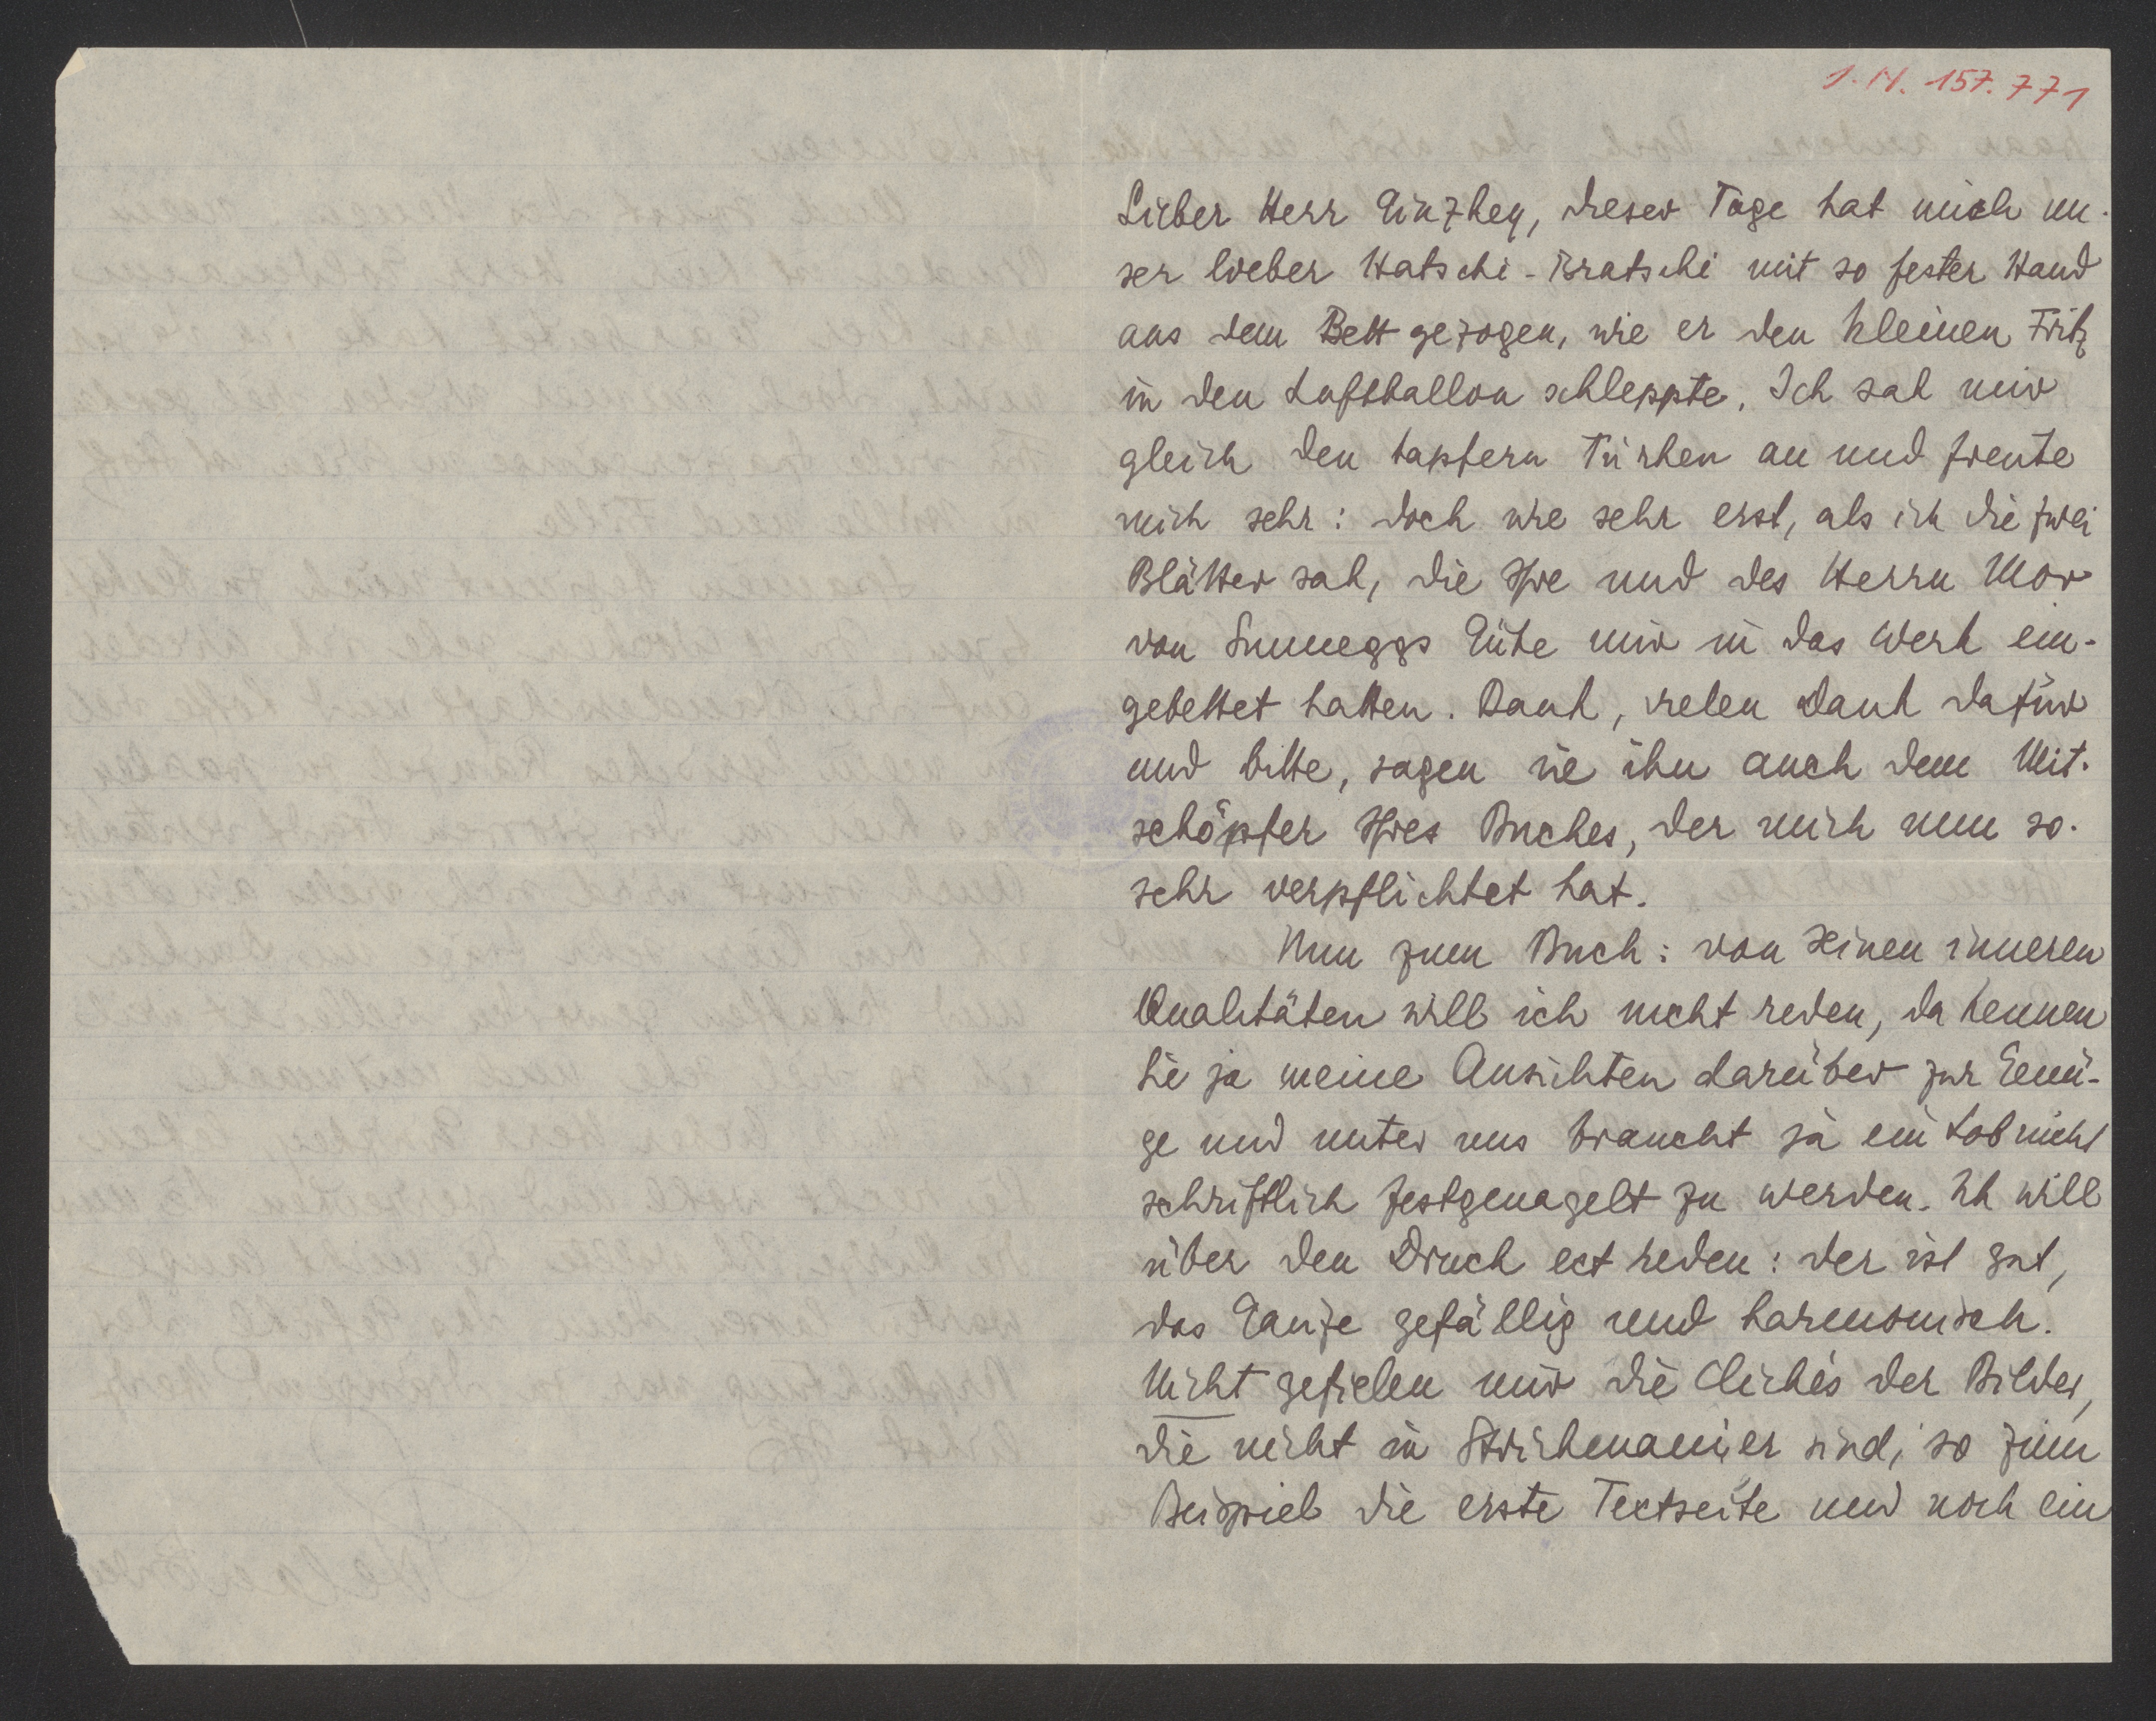 I. N. 157.771
Lieber Herr Ginzkey, dieser Tage hat mich un-
ser lieber Hatschi-Bratschi mit so fester Hand
aus dem Bett gezogen, wie er den kleinen Fritz
in den Luftballon schleppte. Ich sah mir
gleich den tapfern Türken an und freute
mich sehr: doch wie sehr erst, als ich die zwei
Blätter sah, die Ihre und des Herrn Mor
von Sunneggs Güte mir in das Werk ein-
gebettet hatten. Dank, vielen Dank dafür
und bitte, sagen sie ihn auch dem Mit-
schöpfer Ihres Buches, der mich nun so-
sehr verpflichtet hat.
Nun zum Buch: von seinen inneren
Qualitäten will ich nicht reden, da kennen
Sie ja meine Ansichten darüber zur Genü-
ge und unter uns braucht ja ein Lob nicht
schriftlich festgenagelt zu werden. Ich will
über den Druck ect reden: der ist gut,
das Ganze gefällig und harmonisch.
Nicht gefielen mir die Clichés der Bilder,
die nicht in Strichmanier sind, so zum
Beispiel die erste Textseite und noch ein